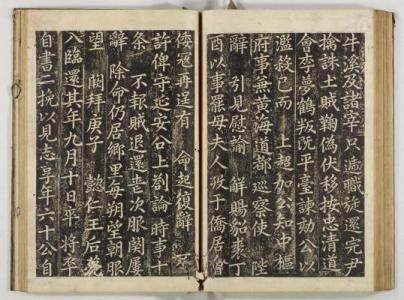 牛溪及諸字只遞職旋還完尹
擒誅土賊鞫僞伏移按忠清道
會李夢鶴叛既平臺諫劾公以
濫殺已而 上超加公知中樞
府事兼黃海道都巡察使 陛
辭 引見慰諭 解賜貂裘丁
酉以事罷母夫人歿于僑居
倭冦再逞有 命起復辭 不
許俾守延安公上劄論時事十
条 不報賊退還喪次服闋屢
辭 除命仍居鄉里每朔望朝服
望 闕拜庚子 懿仁王后薨
入臨還其年九月十日卒 將卒
自書二挽以見志享年六十公自